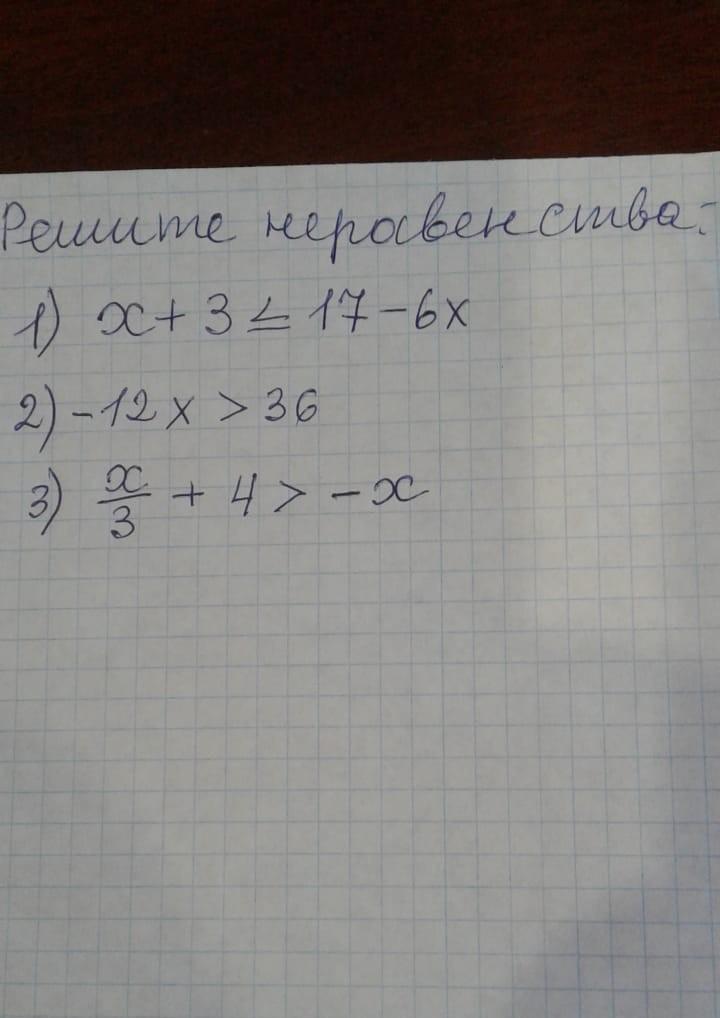 Решите неравенства:
1) x + 3 ≤ 17 - 6x
2) -12x > 36
3) x/3 + 4 > -x